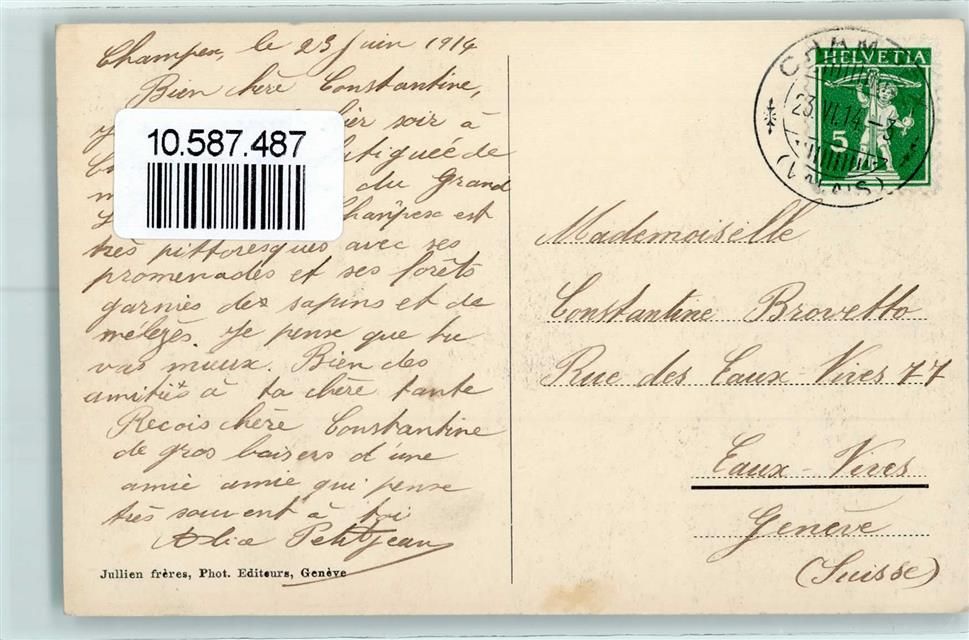 Champex, le 23 Juin 1914
Bien chère Constantine,
hier soir à
fatiguée de
du Grand
Champex est
très pittoresques avec ses
promenades et ses forêts
garnies des sapins et de
mélèzes. Je pense que tu
vas mieux. Bien des
amitiés à ta chère tante
Recois chère Constantine
de gros baisers d'une
amie amie qui pense
très souvent à toi
Alice Petitjean
Jullien frères, Phot. Editeurs, Genève
10.587.487
HELVETIA
5
CHAM
23.VI.14.-3
Mademoiselle
Constantine Brovetto
Rue des Eaux-Vives 77
Eaux-Vives
Genève
(Suisse)